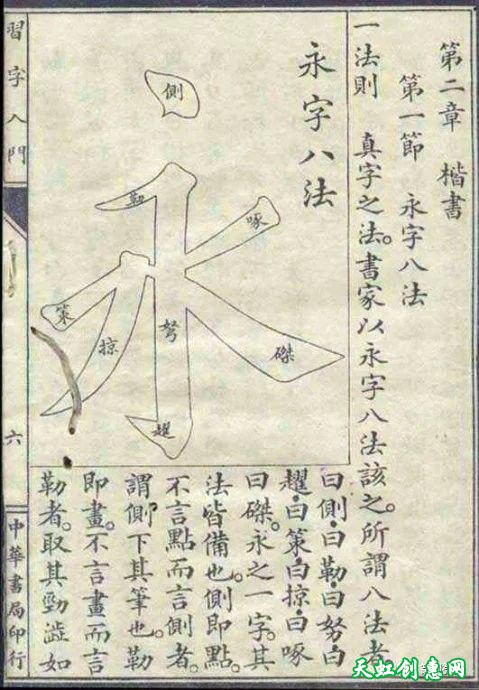 第二章　楷書
第一節　永字八法
一法則　真字之法。書家以永字八法該之。所謂八法者
永字八法
側
勒
努
趯
策
掠
啄
磔
曰側。曰勒。曰努。曰
趯。曰策。曰掠。曰啄
曰磔。永之一字。其
法皆備也。側即點。
不言點而言側者。
謂側下其筆也。勒
即畫。不言畫而言
勒者。取其勁澁如
習字入門
六
中華書局印行
天虹创意网